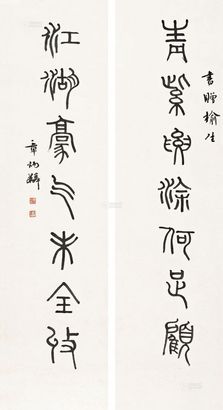 書贈榆生
青紫要涂何足顧
江湖豪气未全收
章炳麟